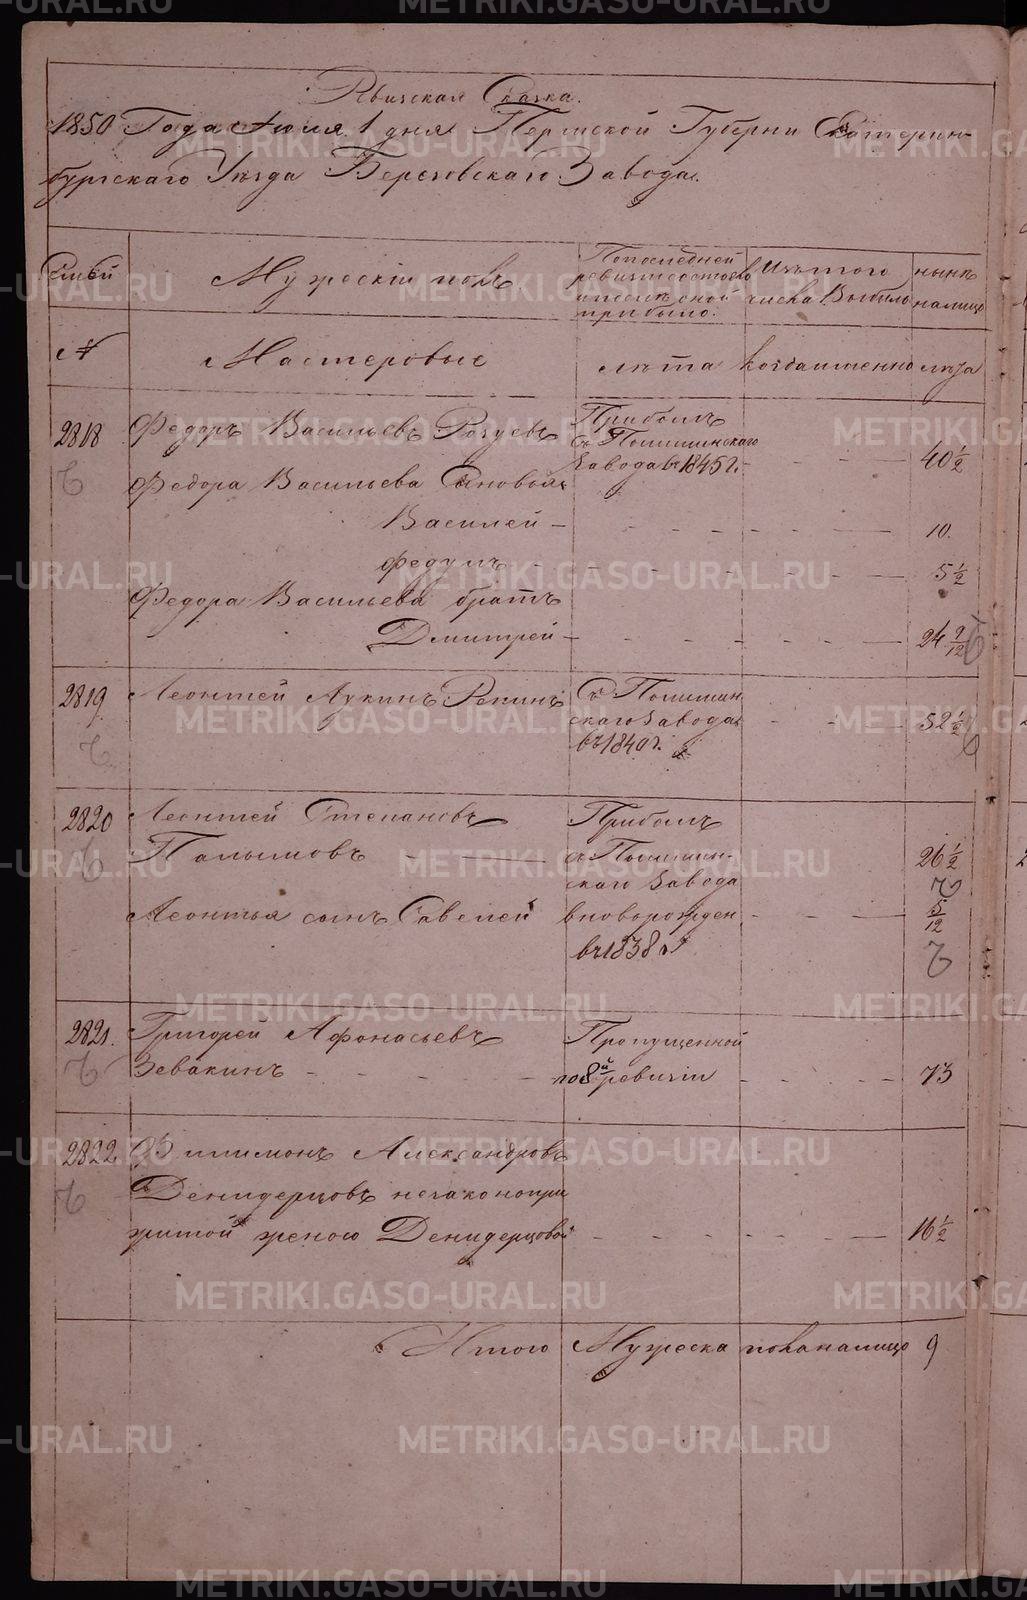 Ревизская Сказка.
1850 Года Июля 1 дня Пермской Губернии Екатерин-
бургскаго Уезда Березовскаго Завода.
Семьи
Мужескій полъ.
По последней
ревизіи состояло
и после оной
прибыло.
Изъ того
числа Выбыло
ныне
налицо
№
Мастеровые
лета
когда именно
лета
2818
Федоръ Васильевъ
Прибылъ
Завода въ 1845 г.
40 1/2
Федора Васильева Сыновья
Василей
10.
Федулъ
5 1/2
Федора Васильева братъ
Дмитрей
24 9/12
2819
Леонтей Лукинъ Репинъ
скаго Завода
въ 1840 г.
52 1/2
2820
Леонтей Степановъ
Прибылъ
скаго Завода
26 1/2
Леонтья сынъ Савелей
вновьрожден
въ 1838 г.
5/12
2821.
Григорей Афонасьевъ
Зевакинъ
Пропущенной
по 8й ревизіи
73
2822
Филимонъ Александровъ
Денидерцовъ незаконопри
житой женою Денидерцовой
16 1/2
Итого Мужеска пола налицо 9
METRIKI.GASO-URAL.RU